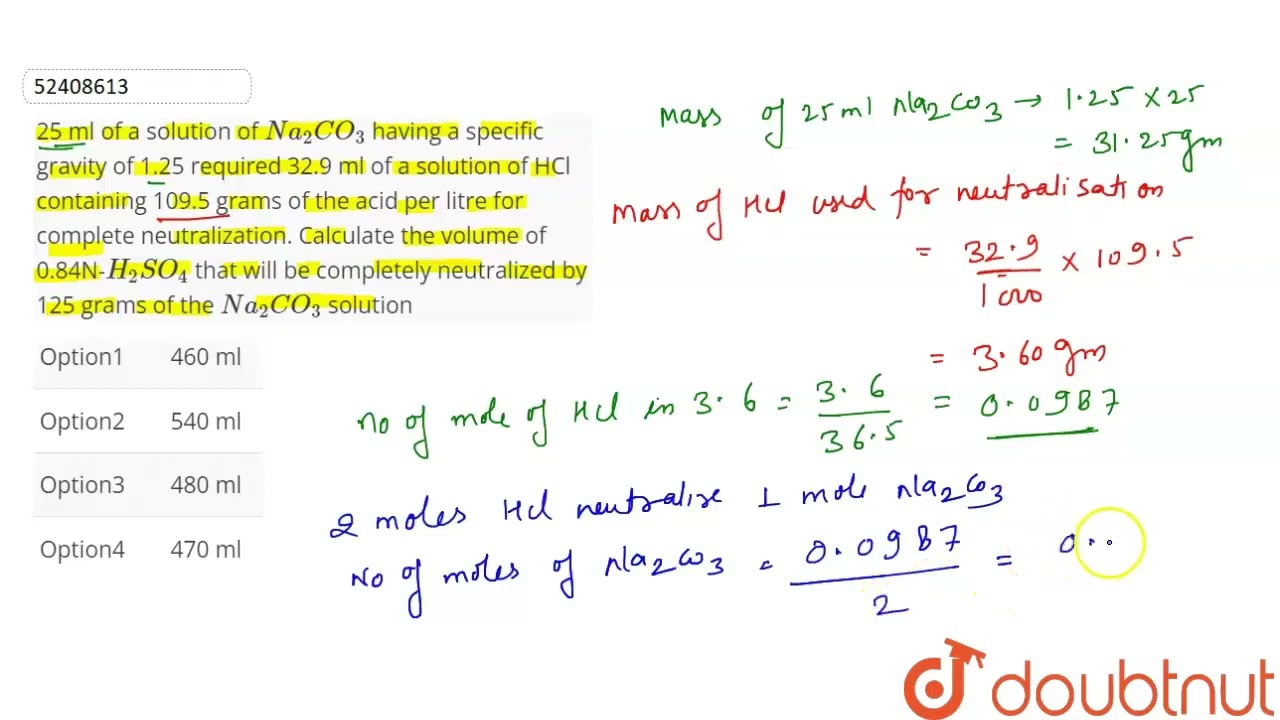 52408613
25 ml of a solution of Na₂CO₃ having a specific
gravity of 1.25 required 32.9 ml of a solution of HCl
containing 109.5 grams of the acid per litre for
complete neutralization. Calculate the volume of
0.84N-H₂SO₄ that will be completely neutralized by
125 grams of the Na₂CO₃ solution
Option1 460 ml
Option2 540 ml
Option3 480 ml
Option4 470 ml
Mass of 25 ml Na₂CO₃ → 1.25 × 25
= 31.25 gm
Mass of HCl used for neutralisation
= 32.9/1000 × 109.5
= 3.60 gm
No of mole of HCl in 3.6 = 3.6/36.5 = 0.0987
2 moles HCl neutralize 1 mole Na₂CO₃
No of moles of Na₂CO₃ = 0.0987/2 = 0..
doubtnut